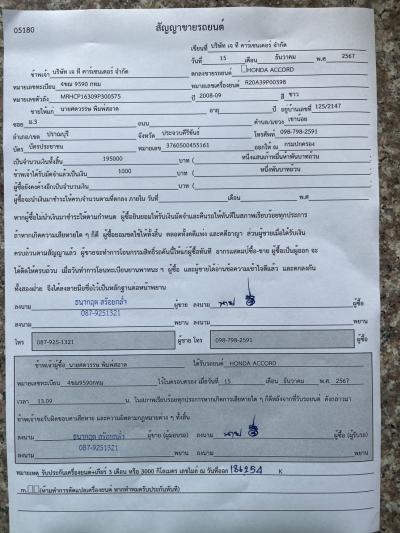 05180
สัญญาขายรถยนต์
เขียนที่ บริษัท เจ ที คาร์เซนเตอร์ จำกัด
วันที่ 15 เดือน ธันวาคม พ.ศ 2567
ข้าพเจ้า บริษัท เจ ที คาร์เซนเตอร์ จำกัด ตกลงขายรถยนต์ HONDA ACCORD
หมายเลขทะเบียน 4ขฌ 9590 กทม หมายเลขเครื่องยนต์ R20A39P00598
หมายเลขตัวถัง MRHCP16309P300575 ปี 2008-09 สี ขาว
ขายให้แก่ นายศตวรรษ พิมพ์สอาด อายุ ปี อยู่บ้านเลขที่ 125/2147
ซอย ม.3 ถนน ตำบล/แขวง เขาน้อย
อำเภอ/เขต ปราณบุรี จังหวัด ประจวบคีรีขันธ์ โทรศัพท์ 098-798-2591
บัตร บัตรประชาชน หมายเลข 3760500455161 ออกให้ ณ กรมปกครอง
เป็นจำนวนเงินทั้งสิ้น 195000 บาท ( หนึ่งแสนเก้าหมื่นห้าพันบาทถ้วน
ข้าพเจ้าได้รับมัดจำแล้วเป็นเงิน 1000 บาท ( หนึ่งพันบาทถ้วน
ผู้ซื้อยังคงค้างอีกเป็นจำนวนเงิน บาท (
ผู้ซื้อจะนำเงินมาชำระให้ครบจำนวนตามที่ตกลง ภายใน วันที่ เดือน พ.ศ
หากผู้ซื้อไม่นำเงินมาชำระให้ตามกำหนด ผู้ซื้อยินยอมให้ริบเงินมัดจำและคืนรถให้ทันทีในสภาพเรียบร้อยทุกประการ
ถ้าหากเกิดความเสียหายใด ๆ ก็ดี ผู้ซื้อยอมชดใช้ให้ทั้งสิ้น ตลอดทั้งคดีแพ่ง และคดีอาญา ส่วนผู้ขายเมื่อได้รับเงิน
ครบถ้วนตามสัญญาแล้ว ผู้ขายจะทำการโอนกรรมสิทธิ์รถคันนี้ให้แก่ผู้ซื้อทันที อากรแสตมป์ซื้อ-ขาย ผู้ซื้อเป็นผู้ออก จะ
ได้คิดให้ครบถ้วน เมื่อวันทำการโอนทะเบียนยานพาหนะ ฯ ผู้ซื้อ และผู้ขายได้อ่านข้อความเข้าใจดีแล้ว และตกลงกัน
ทั้งสองฝ่าย จึงได้ลงลายมือชื่อไว้เป็นหลักฐานต่อหน้าพยาน
ลงนาม ธนากฤต สร้อยกล่ำ ผู้ขาย ลงนาม ผู้ซื้อ
087-9251321
ลงนาม พยาน ลงนาม พยาน
โทร 087-925-1321 ผู้ขาย โทร 098-798-2591 ผู้ซื้อ
ข้าพเจ้าผู้ซื้อ นายศตวรรษ พิมพ์สอาด ได้รับรถยนต์ HONDA ACCORD
หมายเลขทะเบียน 4ขฌ9590กทม ไว้ในครอบครอง เมื่อวันที่ 15 เดือน ธันวาคม พ.ศ. 2567
เวลา 13.09 น. ในสภาพเรียบร้อยทุกประการหากเกิดการเสียหายใด ๆ ก็ดีหลังจากที่รับรถยนต์ ดังกล่าวมา
ข้าพเจ้าขอรับผิดชอบค่าเสียหาย และความผิดตามกฎหมายต่าง ๆ ทั้งสิ้น
ลงนาม ธนากฤต สร้อยกล่ำ ผู้ขาย (ผู้มอบรถ) ลงนาม ผู้ซื้อ (ผู้รับรถ)
087-9251321
ลงนาม พยาน ลงนาม พยาน
หมายเหตุ รับประกันเครื่องยนต์+เกียร์ 3 เดือน หรือ 3000 กิโลเมตร เลขไมล์ ณ วันที่ออก K
(ห้ามทำการดัดแปลงเครื่องยนต์ หากทำหมดรับประกันทันที)